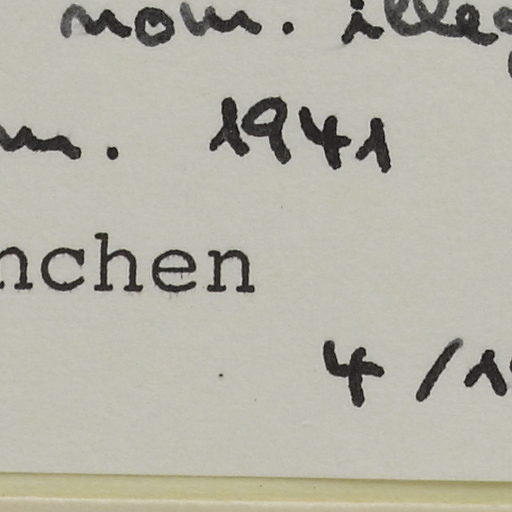 nom. illeg
m. 1941
nchen
4/1